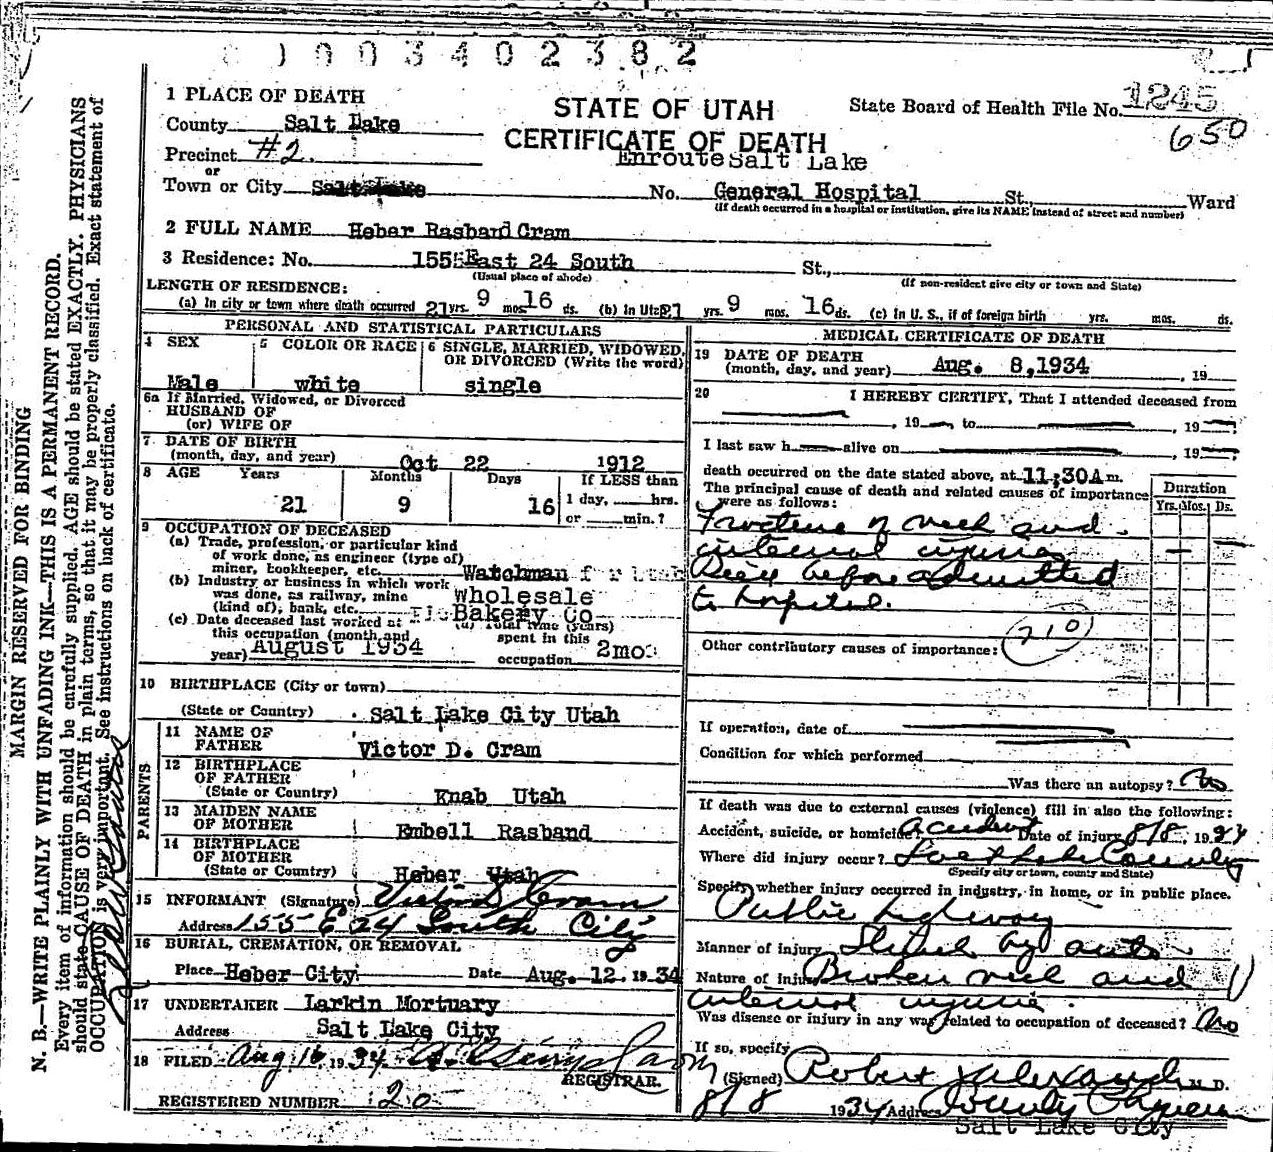 1003402382
1 PLACE OF DEATH
County Salt Lake
Precinct #2.
or
Town or City Salt Lake
STATE OF UTAH
CERTIFICATE OF DEATH
State Board of Health File No. 1245
650
Enroute Salt Lake
No. General Hospital St., Ward
(If death occurred in a hospital or institution, give its NAME instead of street and number)
2 FULL NAME Heber Rasband Cram
3 Residence: No. 155 East 24 South St.,
(Usual place of abode)
(If non-resident give city or town and State)
LENGTH OF RESIDENCE:
(a) In city or town where death occurred 21 yrs. 9 mos. 16 ds. (b) In Utah 21 yrs. 9 mos. 16 ds. (c) In U. S., if of foreign birth yrs. mos. ds.
PERSONAL AND STATISTICAL PARTICULARS
4 SEX
Male
5 COLOR OR RACE
white
6 SINGLE, MARRIED, WIDOWED,
OR DIVORCED (Write the word)
single
6a If Married, Widowed, or Divorced
HUSBAND OF
(or) WIFE OF
7 DATE OF BIRTH
(month, day, and year) Oct 22 1912
8 AGE Years Months Days If LESS than
21 9 16 1 day, hrs.
or min.?
9 OCCUPATION OF DECEASED
(a) Trade, profession, or particular kind
of work done, as engineer (type of)
miner, bookkeeper, etc. Watchman for Utah
(b) Industry or business in which work
was done, as railway, mine
(kind of), bank, etc. Wholesale
Bakery Co
(c) Date deceased last worked at
this occupation (month and
year) August 1934
(d) Total time (years)
spent in this
occupation 2mo.
10 BIRTHPLACE (City or town)
(State or Country) Salt Lake City Utah
PARENTS
11 NAME OF
FATHER Victor D. Cram
12 BIRTHPLACE
OF FATHER
(State or Country) Knab Utah
13 MAIDEN NAME
OF MOTHER Embell Rasband
14 BIRTHPLACE
OF MOTHER
(State or Country) Heber Utah
15 INFORMANT (Signature) Victor D Cram
Address 155 E 24 South City
16 BURIAL, CREMATION, OR REMOVAL
Place Heber City Date Aug. 12. 1934
17 UNDERTAKER Larkin Mortuary
Address Salt Lake City
18 FILED Aug 16, 1934.
REGISTRAR.
REGISTERED NUMBER 20
MEDICAL CERTIFICATE OF DEATH
19 DATE OF DEATH
(month, day, and year) Aug. 8, 1934, 19
20 I HEREBY CERTIFY, That I attended deceased from
, 19 to , 19 ;
I last saw h alive on , 19 ;
death occurred on the date stated above, at 11:30A m.
The principal cause of death and related causes of importance
were as follows:
Duration
Yrs. Mos. Ds.
Fracture of neck and
internal injuries
Died before admitted
to hospital.
210
Other contributory causes of importance:
If operation, date of
Condition for which performed
Was there an autopsy? No
If death was due to external causes (violence) fill in also the following:
Accident, suicide, or homicide? Accident Date of injury 8/8, 1934
Where did injury occur? Salt Lake County
(Specify city or town, county and State)
Specify whether injury occurred in industry, in home, or in public place.
Public highway
Manner of injury Struck by auto
Nature of injury Broken neck and
internal injuries.
Was disease or injury in any way related to occupation of deceased? No
If so, specify
(Signed) Robert Alexander M. D.
8/8 1934 Address County Physician
Salt Lake City
MARGIN RESERVED FOR BINDING
N. B.—WRITE PLAINLY WITH UNFADING INK—THIS IS A PERMANENT RECORD.
Every item of information should be carefully supplied. AGE should be stated EXACTLY. PHYSICIANS
should state CAUSE OF DEATH in plain terms, so that it may be properly classified. Exact statement of
OCCUPATION is very important. See instructions on back of certificate.